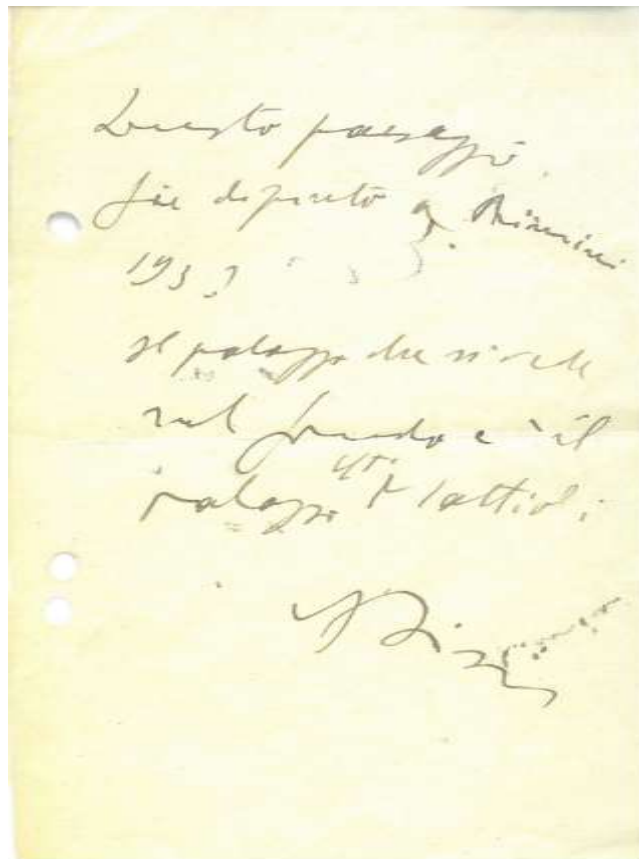 Questo paesaggio
fu dipinto a Rimini
193
Il palazzo che si vede
nel fondo è il
palazzo Mattioli